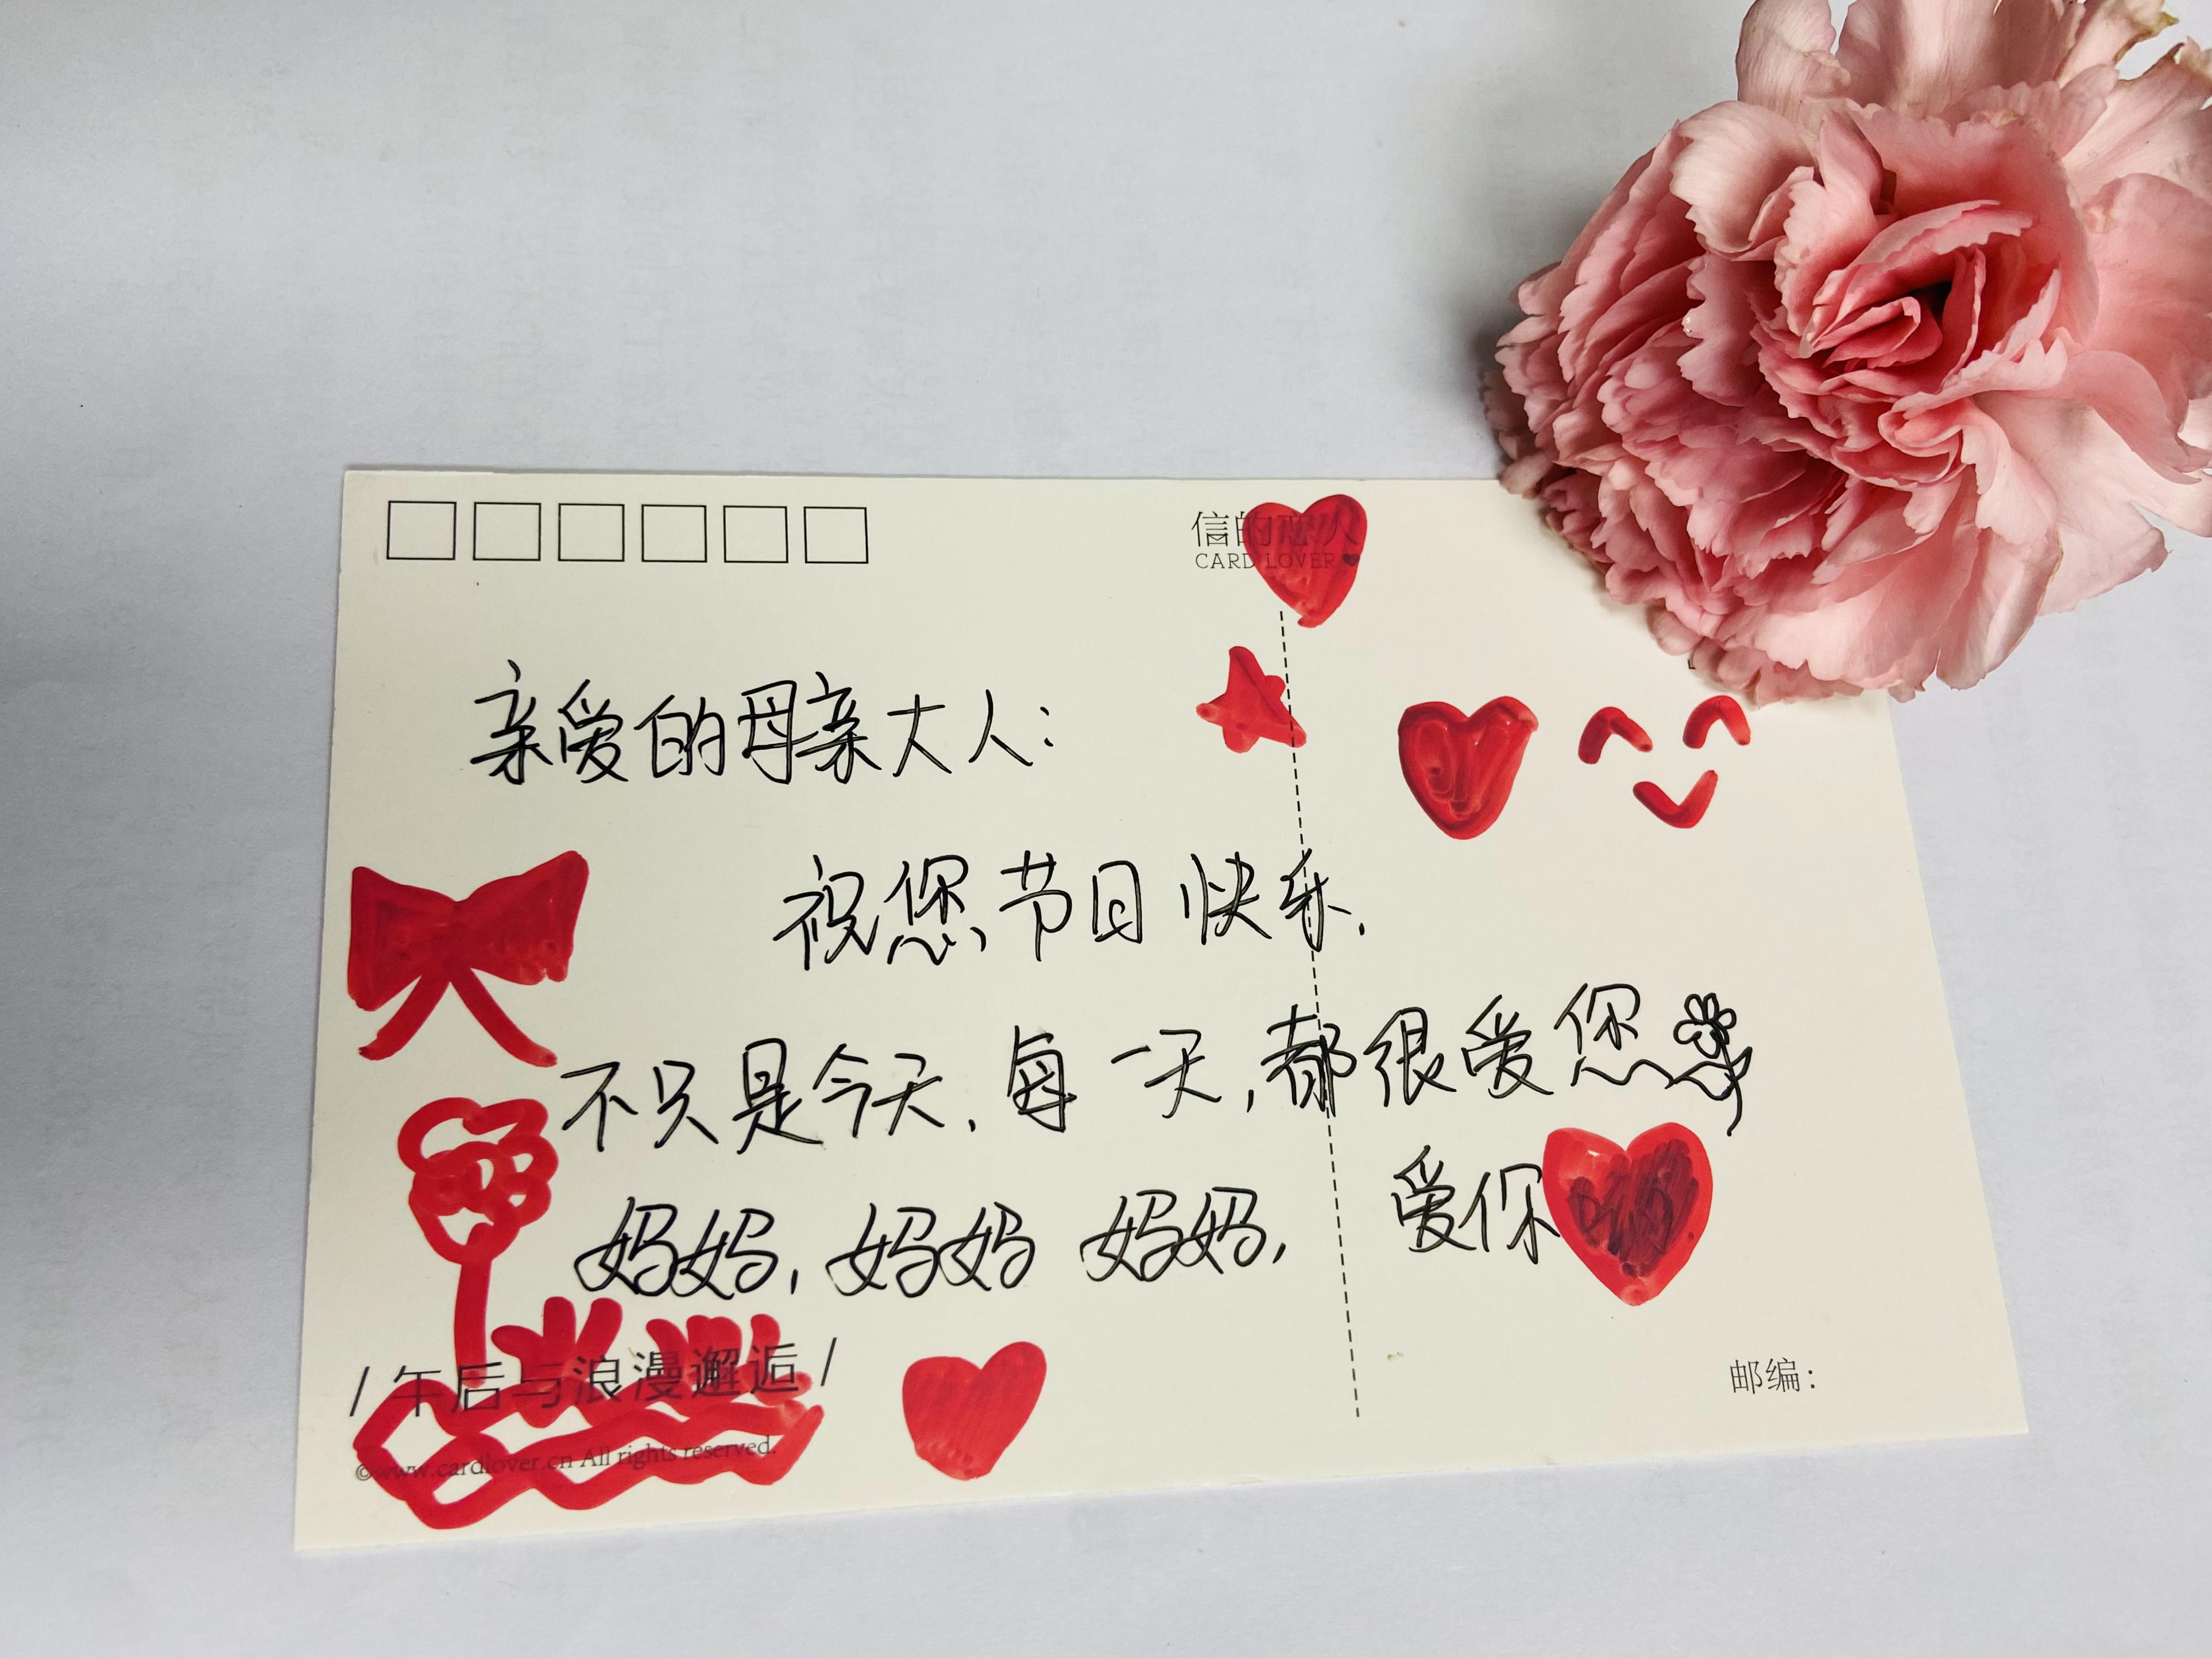 信的恋人
CARD LOVER
亲爱的母亲大人:
祝您节日快乐.
不只是今天,每一天,都很爱您
妈妈,妈妈 妈妈, 爱你
/ 午后与浪漫邂逅 /
邮编:
©www.cardlover.cn All rights reserved.